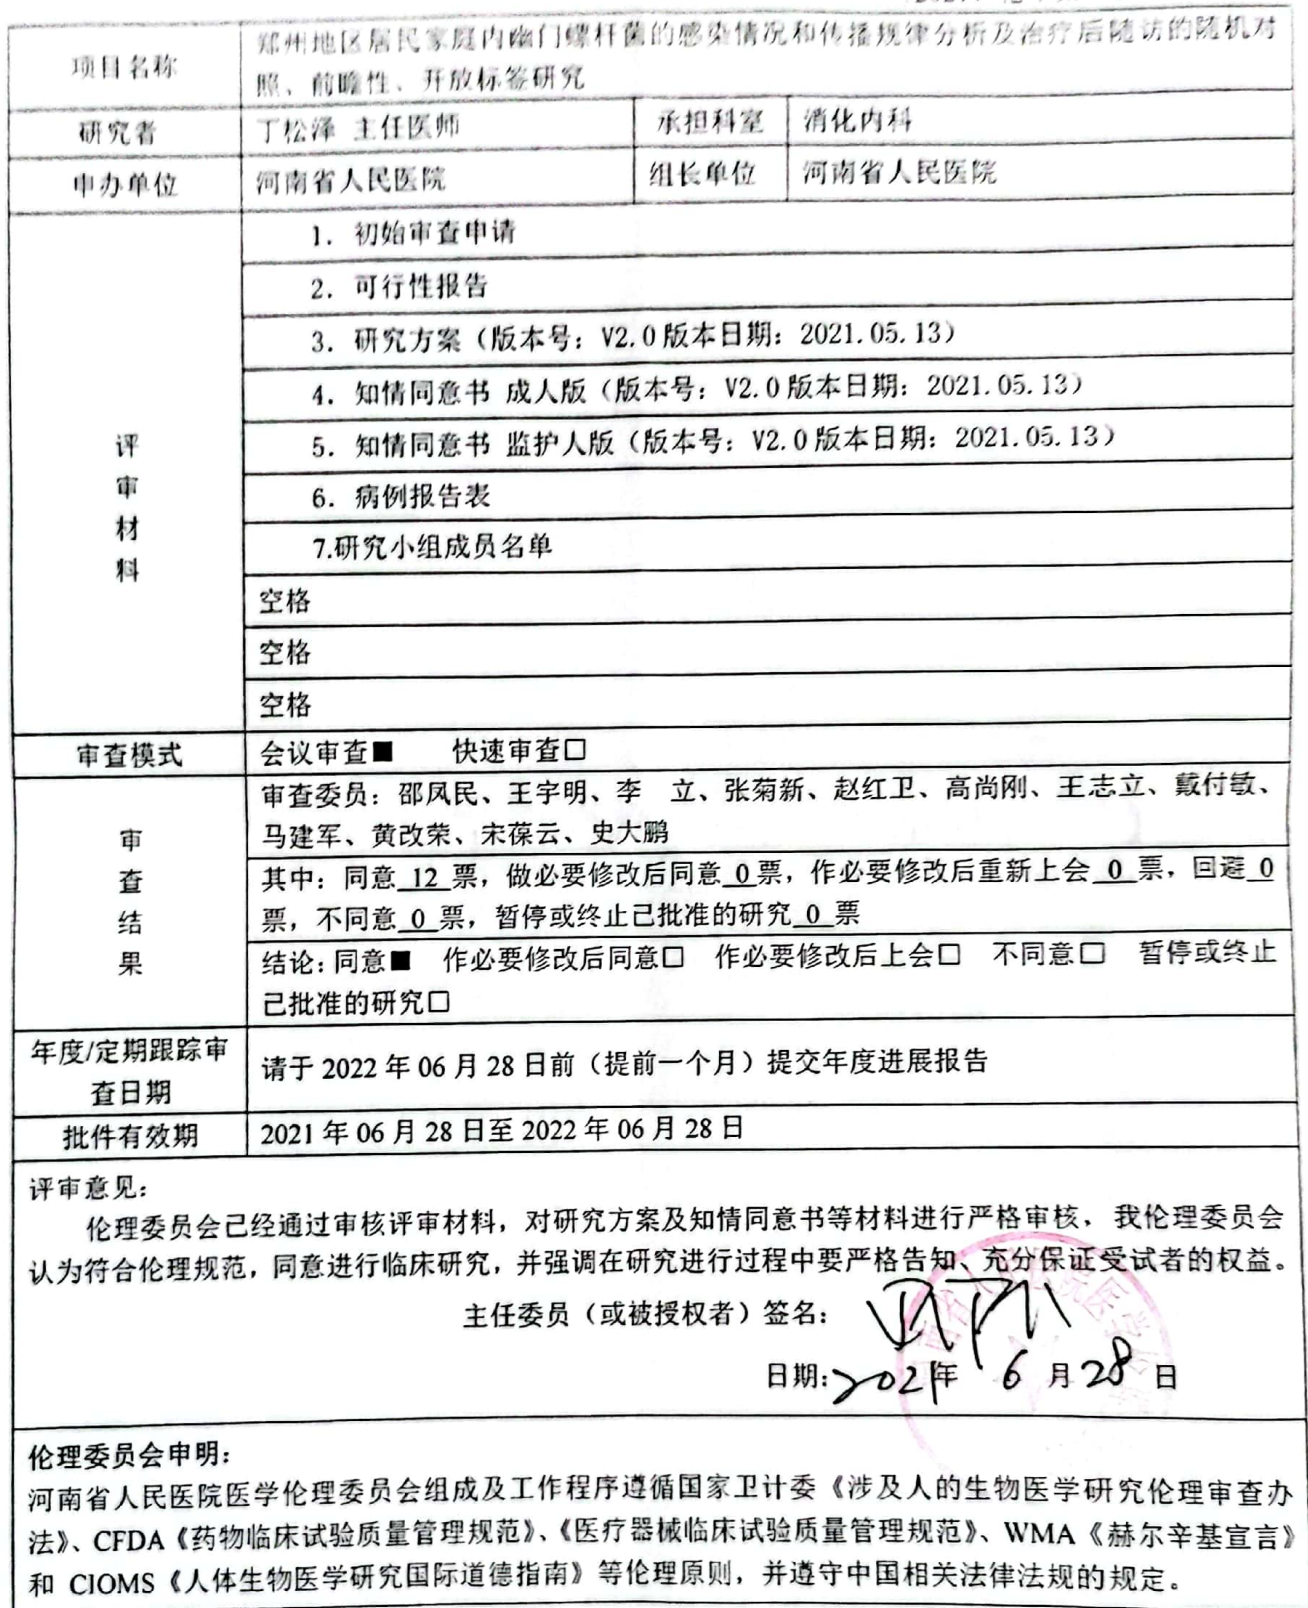 项目名称
郑州地区居民家庭内幽门螺杆菌的感染情况和传播规律分析及治疗后随访的随机对
照、前瞻性、开放标签研究
研究者 丁松泽 主任医师 承担科室 消化内科
申办单位 河南省人民医院 组长单位 河南省人民医院
评审材料
1. 初始审查申请
2. 可行性报告
3. 研究方案（版本号：V2.0版本日期：2021.05.13）
4. 知情同意书 成人版（版本号：V2.0版本日期：2021.05.13）
5. 知情同意书 监护人版（版本号：V2.0版本日期：2021.05.13）
6. 病例报告表
7.研究小组成员名单
空格
空格
空格
审查模式 会议审查■ 快速审查□
审查结果
审查委员：邵凤民、王宇明、李 立、张菊新、赵红卫、高尚刚、王志立、戴付敏、
马建军、黄改荣、宋葆云、史大鹏
其中：同意 12 票，做必要修改后同意 0 票，作必要修改后重新上会 0 票，回避 0
票，不同意 0 票，暂停或终止已批准的研究 0 票
结论：同意■ 作必要修改后同意□ 作必要修改后上会□ 不同意□ 暂停或终止
已批准的研究□
年度/定期跟踪审
查日期
请于 2022 年 06 月 28 日前（提前一个月）提交年度进展报告
批件有效期 2021 年 06 月 28 日至 2022 年 06 月 28 日
评审意见：
伦理委员会已经通过审核评审材料，对研究方案及知情同意书等材料进行严格审核，我伦理委员会
认为符合伦理规范，同意进行临床研究，并强调在研究进行过程中要严格告知、充分保证受试者的权益。
主任委员（或被授权者）签名：
日期：2021年 6 月 28 日
伦理委员会申明：
河南省人民医院医学伦理委员会组成及工作程序遵循国家卫计委《涉及人的生物医学研究伦理审查办
法》、CFDA《药物临床试验质量管理规范》、《医疗器械临床试验质量管理规范》、WMA《赫尔辛基宣言》
和 CIOMS《人体生物医学研究国际道德指南》等伦理原则，并遵守中国相关法律法规的规定。